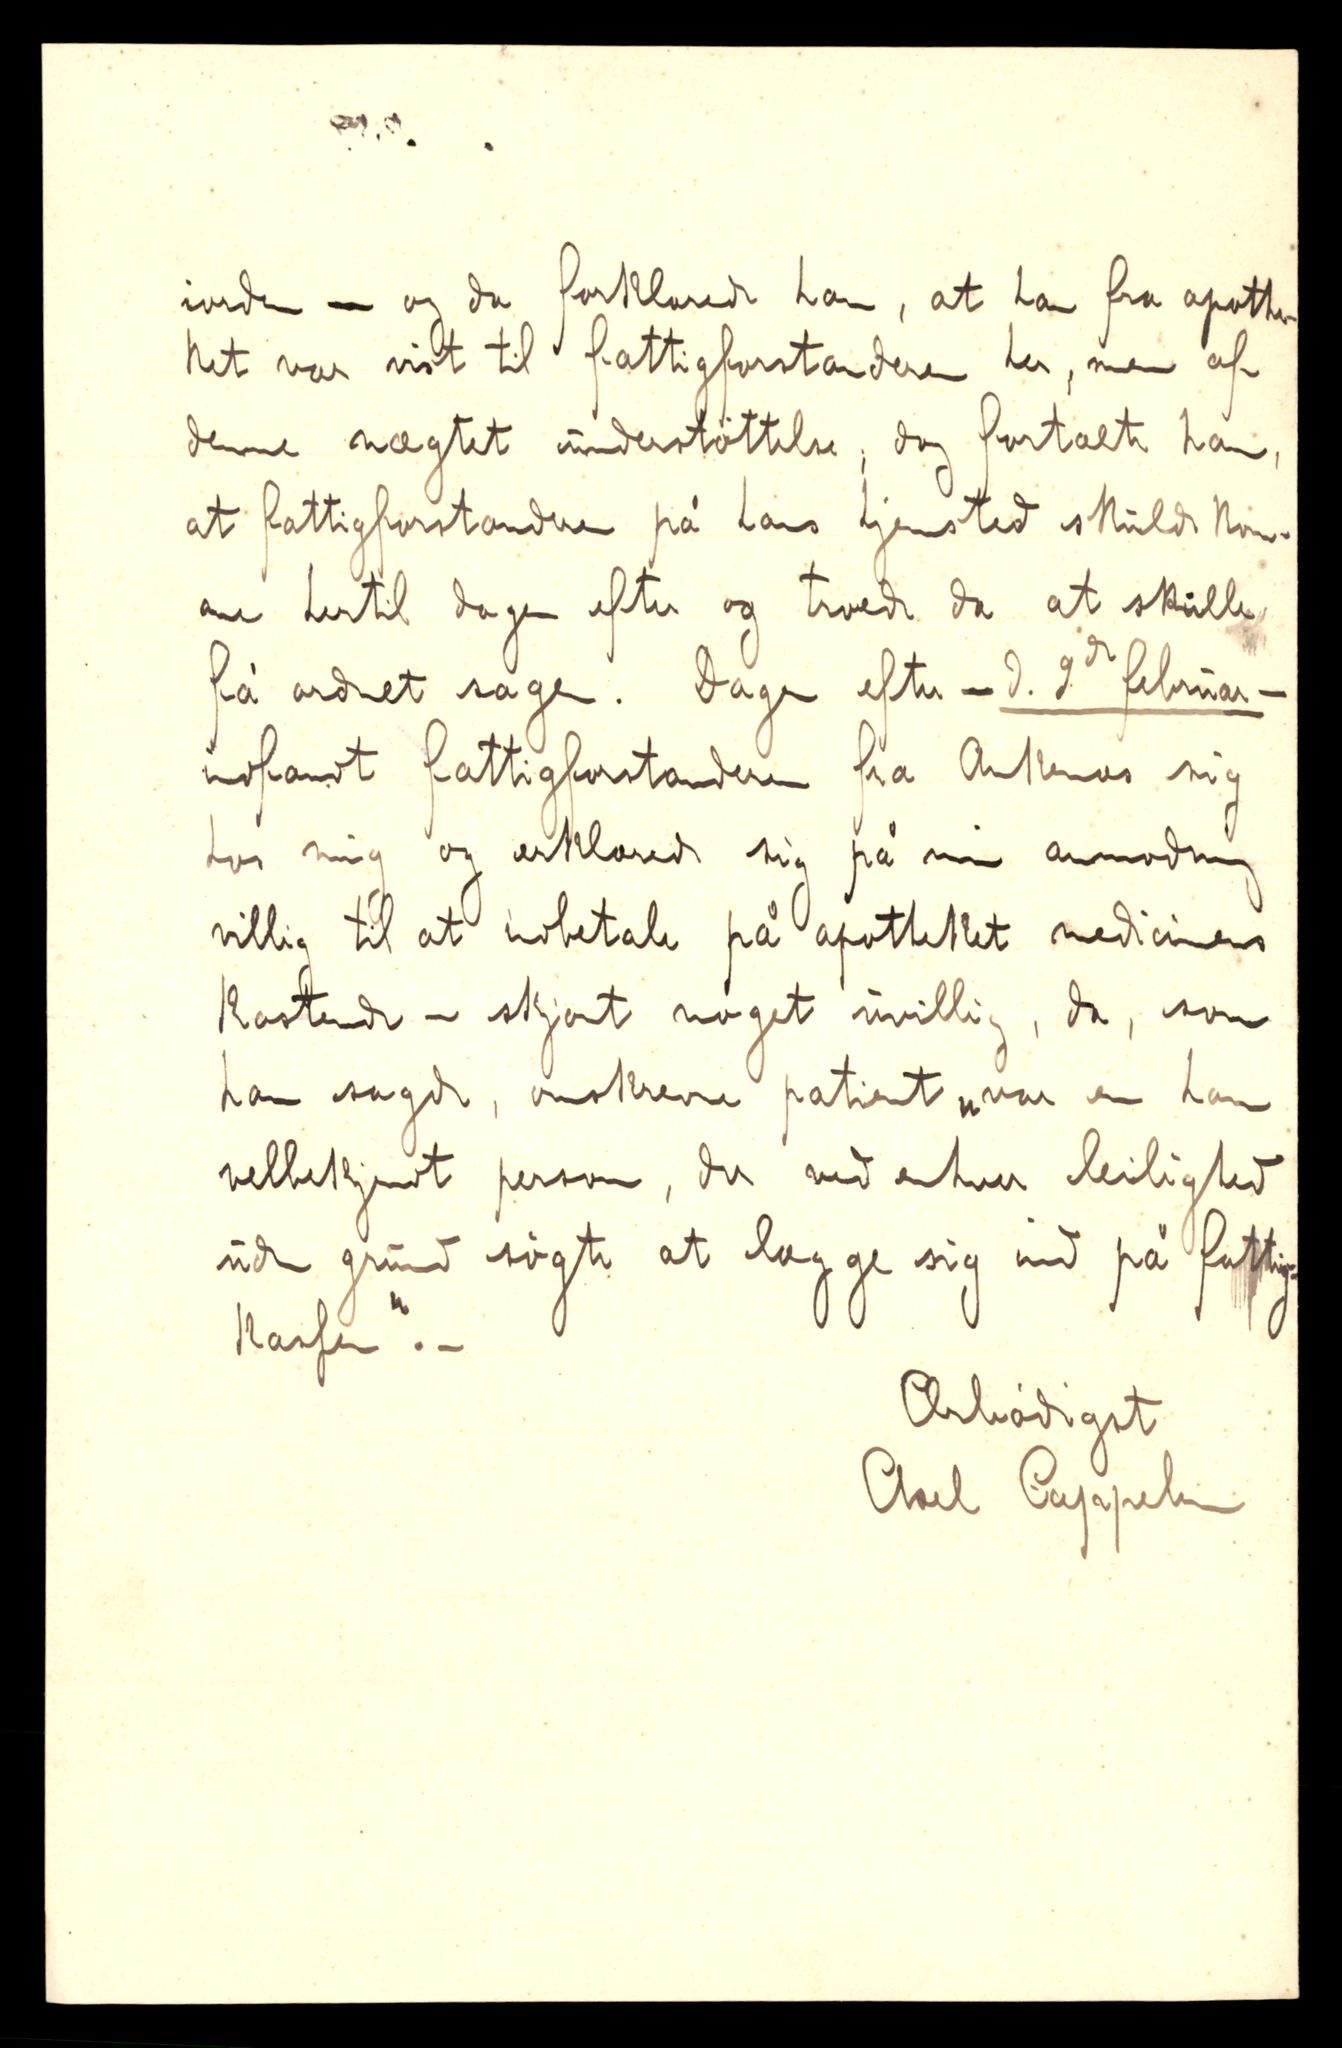 iorden — og da forklarede han, at han fra apothe-
ket var vist til fattigforstanderen her, men af
denne nægtet understøttelse; dog fortalte han,
at fattigforstanderen på hans hjemsted skulde kom-
me hertil dagen efter og troede da at skulle
få ordnet sagen. Dagen efter — d. 9de februar —
indfandt fattigforstanderen fra Ankenes sig
hos mig og erklærede sig på min anmodning
villig til at indbetale på apotheket medicinens
kostende — skjønt noget uvillig, da, som
han sagde, omskrevne patient „var en ham
velbekjendt person, der ved enhver leilighed
uden grund søgte at lægge sig ind på fattig-
kassen". —
Ærbødigst
Axel Cappelen